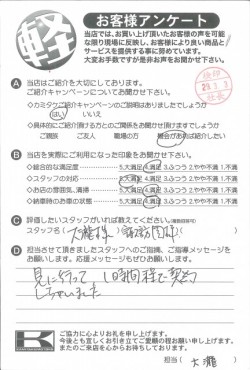 軽
お客様アンケート
当店では、お買い上げ頂いたお客様の声を可能な
限り現場に反映し、お客様により良い商品と
サービスを提供する事に努めています。
大変お手数ですが是非お声をお聞かせ下さい。
A 当店はご紹介を大切にしております。
ご紹介キャンペーンについてお聞かせ下さい。
はい いいえ
ご親族 ご友人 職場の方 機会があれば紹介したい
B 当店を実際にご利用になった印象をお聞かせ下さい。
◇総合的な満足度 5.大満足 4.満足 3.ふつう 2.やや不満 1.不満
◇スタッフの対応 5.大満足 4.満足 3.ふつう 2.やや不満 1.不満
◇お店の雰囲気、清掃 5.大満足 4.満足 3.ふつう 2.やや不満 1.不満
◇納車時のお車の状態 5.大満足 4.満足 3.ふつう 2.やや不満 1.不満
C 評価したいスタッフがいれば教えてください。
スタッフ名(大瀧様
D 担当させて頂きましたスタッフへのご指摘、ご指導メッセージを
お願いします。応援メッセージもぜひお願いします。
見に行って 1時間程で契約
しちゃいました
K
ご協力に心よりお礼を申し上げます。
今後とも宜しくお引き立てご愛顧の程お願い申し上げます。
またのご来店を心からお待ちしております。
担当( 大瀧 )